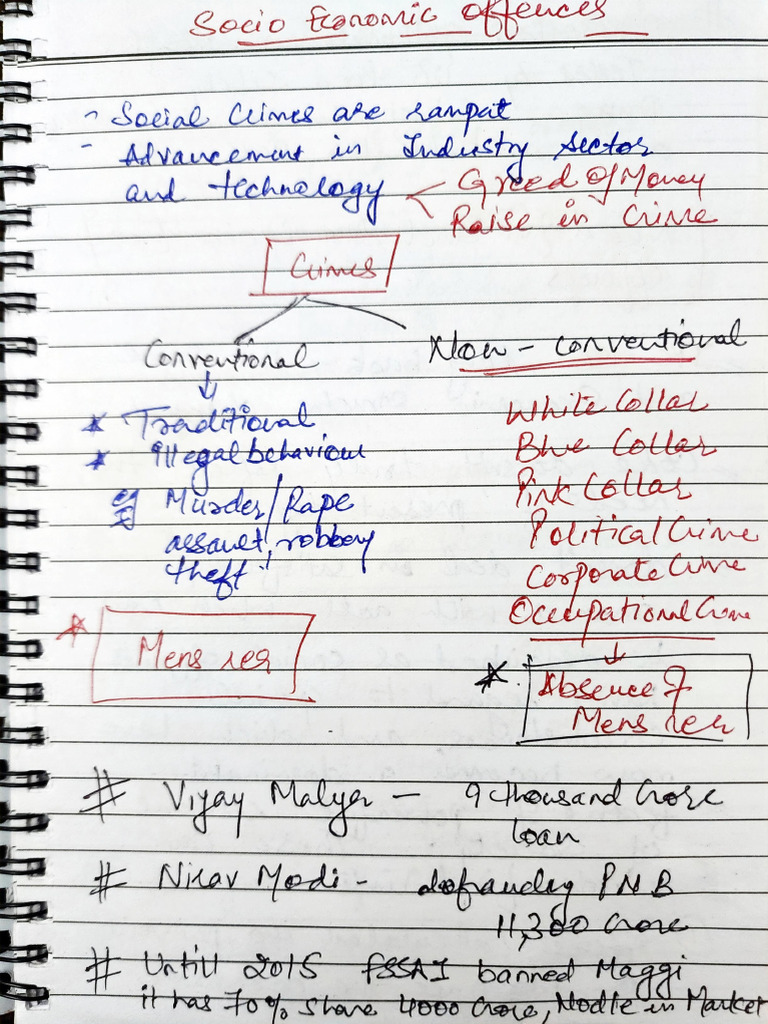 Socio Economic offences
- Social Crimes are rampat
- Advancement in Industry Sector
and technology
Greed of Money
Raise in Crime
Crimes
Conventional
Non - conventional
* Traditional
* illegal behaviour
eg Murder/Rape
assault, robbery
theft
* Mens rea
White Collar
Blue Collar
Pink Collar
Political Crime
Corporate Crime
Occupational Crime
* Absence of
Mens rea
# Vijay Malya - 9 thousand Crore
loan
# Nirav Modi - defrauding PNB
11,300 Crore
# Untill 2015 FSSAI banned Maggi
it has 70% share 4000 Crore, Nodle in Market